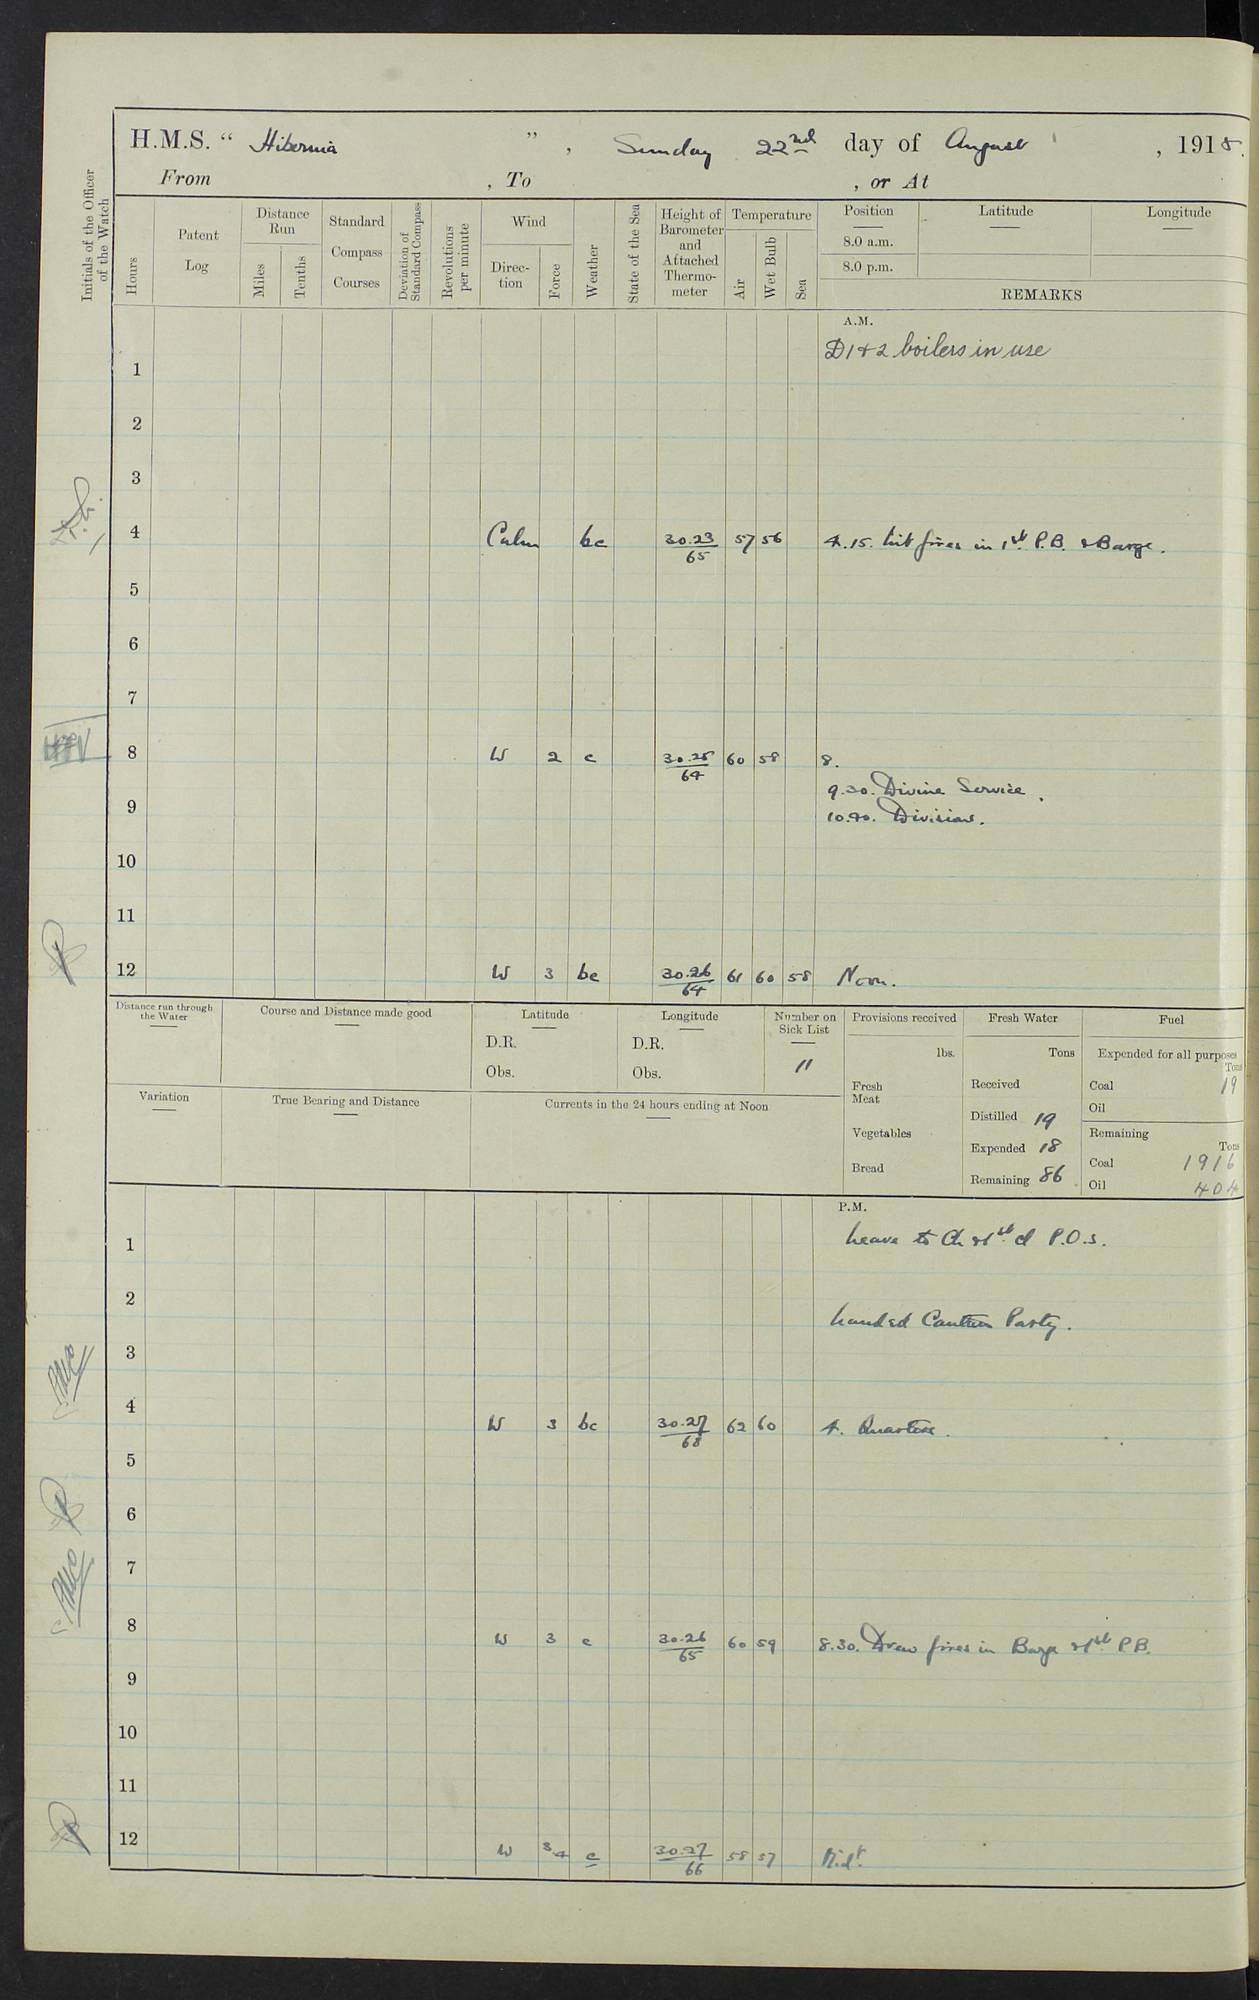 H.M.S. “ Hibernia ”, Sunday 22nd day of August , 1915.
From , To , or At
Initials of the Officer of the Watch
Hours
Patent Log
Distance Run
Miles
Tenths
Standard Compass Courses
Deviation of Standard Compass
Revolutions per minute
Wind
Direc-tion
Force
Weather
State of the Sea
Height of Barometer and Attached Thermo-meter
Temperature
Air
Wet Bulb
Sea
Position
8.0 a.m.
8.0 p.m.
Latitude
Longitude
REMARKS
A.M.
D1 & 2 boilers in use
1
2
3
4 Calm bc 30.23/65 57 56 4.15. Lit fires in 1st P.B. & Barge.
5
6
7
8 W 2 c 30.25/64 60 58 8.
9.30. Divine Service.
9
10.40. Divisions.
10
11
12 W 3 bc 30.26/64 61 60 58 Noon.
Distance run through the Water
Course and Distance made good
Latitude
D.R.
Obs.
Longitude
D.R.
Obs.
Number on Sick List
11
Provisions received
lbs.
Fresh Meat
Vegetables
Bread
Fresh Water
Tons
Received
Distilled 19
Expended 18
Remaining 86
Fuel
Expended for all purposes
Tons
Coal 19
Oil
Remaining
Tons
Coal 1916
Oil 404
Variation
True Bearing and Distance
Currents in the 24 hours ending at Noon
P.M.
1 Leave to Ch & 1st cl P.O.s.
2
Landed Canteen Party.
3
4 W 3 bc 30.27/68 62 60 4. Quarters.
5
6
7
8 W 3 c 30.26/65 60 59 8.30. Drew fires in Barge & 1st P.B.
9
10
11
12 W 3.4 c 30.27/66 58 57 Midt.